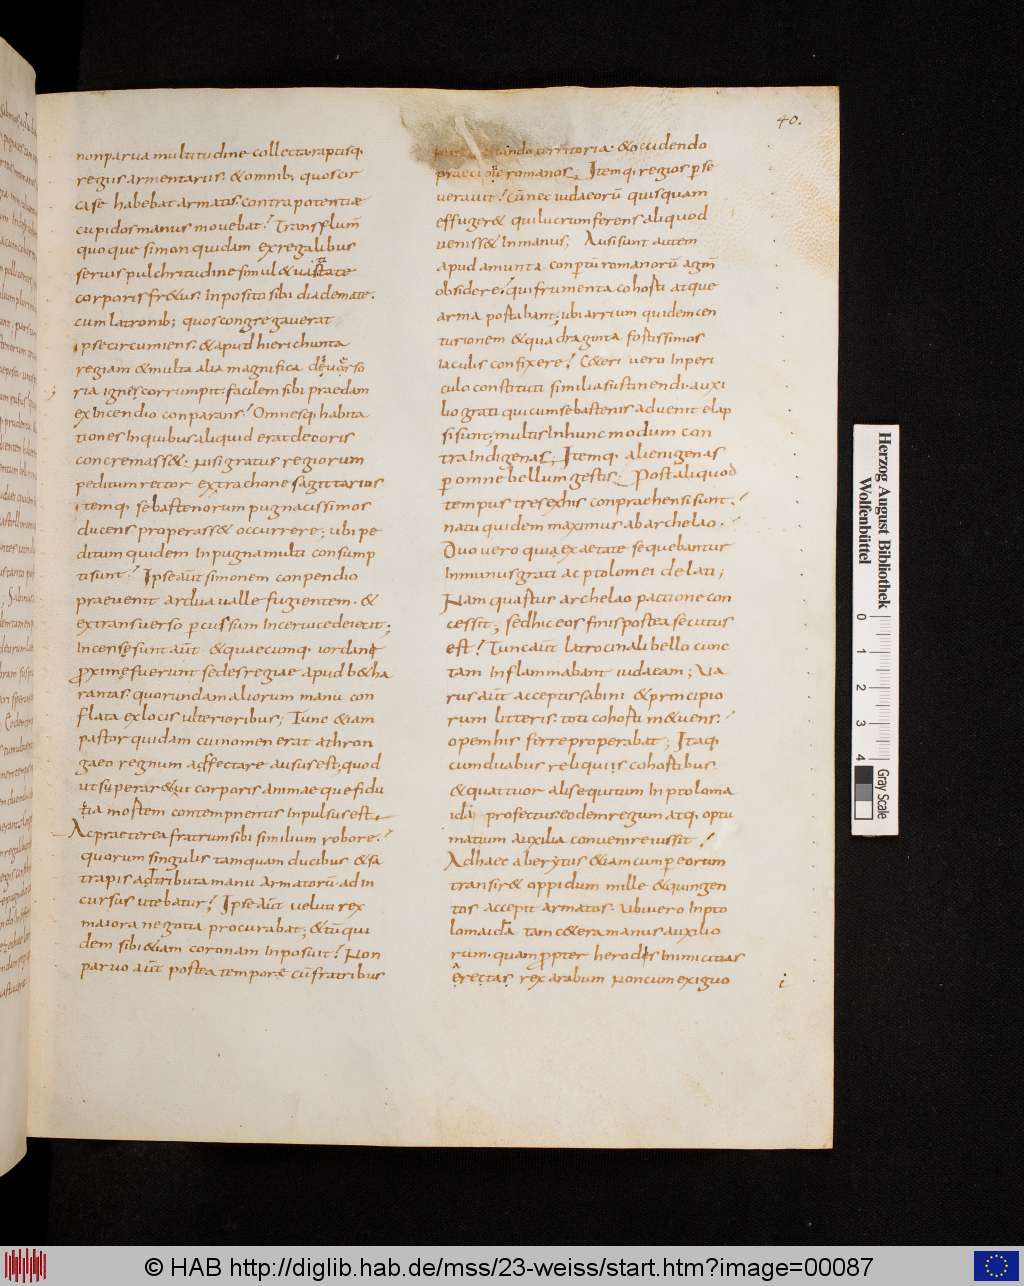 40.
non parua multitudine collecta raptisq.
regiis armentariis. & omnib; quos cir
ca se habebat armatos. contra potentiae
cupidos manus mouebat? Trans flum̄
quoque simon quidam ex regalibus
seruis pulchritudine simul & uastitate
corporis fr&us. Inposito sibi diademate.
cum latronib; quos congregauerat
ipse circumiens. & apud hierichunta
regiam & multa alia magnifica deuorso
ria ignes corrumpit. facilem sibi praedam
ex Incendio conparans? Omnesq. habita
tiones Inquibus aliquid erat decoris
concremass&. Nisi gratus regiorum
peditum rector extrachone sagittarios
itemq. sebastenorum pugnacissimos
ducens properass& occurrere; ubi pe
ditum quidem Inpugna multi consump
ti sunt? Ipse aut̄ simonem conpendio
praeuenit ardua ualle fugientem. &
ex transuerso p̲cussum Incer uice deiecit;
Incensę sunt aūt & quaecumq. iordane
proximę fuerunt sedes regiae apud b&ha
rantas. quorundam aliorum manu con
flata exlocis ulterioribus; Tunc &iam
pastor quidam cui nomen erat athron
gaeo regnum affectare ausus est; quod
ut sperar& ui corporis animaeque fidu
tia mortem contempnentis Inpulsus est.
Ac praeterea fratrum sibi similium robore?
quorum singulis tamquam ducibus & sa
trapis adtributa manu armatorū ad in
cursus utebatur; Ipse aūt uelut rex
maiora negotia procurabat; & tūc qui
dem sibi &iam coronam Inposuit? Non
paruo aūt postea tempore cū fratribus
territoria. & occidendo
praecipue romanos; Itemq. regios p̲se
uerauit? cū nec iudaeorū quisquam
effuger& qui lucrum ferens aliquod
veniss& In manus; Ausi sunt autem
apud ammunta conp̲tū romanorū agm̄
obsidere? qui frumenta cohorti atque
arma portabant; ubi arrium quidem cen
turionem & quadraginta fortissimos
iaculis confixere? C&eri vero Inperi
culo constituti similia sustinendi. auxi
lio grati qui cum sebastenis aduenit elap
si sunt; multis Inhunc modum con
tra Indigenas; Itemq. alienigenas
p̲ omne bellum gestis; Post aliquod
tempus tres exhis conpraehensi sunt.
natu quidem maximus ab archelao.
Duo uero quia ex aetate sequebantur
In manus grati ac ptolomei delati;
Nam quartus archelao pactione con
cessit; sed hic eos finis postea secutus
est? Tunc aūt latrocinali bello cunc
tam Inflammabant iudaeam; Va
rus aūt acceptis sabini & principio
rum litteris. toti cohorti m&uens.
opem his ferre properabat; Itaq.
cum duabus reliquiis cohortibus
& quattuor alis equitum Inptoloma
ida profectus eodem regum atq. optu
matium auxilia conuenire iussit?
Ad haec a berytus &iam cum p̲ eorum
transir& oppidum mille & quingen
tos accepit armatos. Ubi uero Inpto
lomaida tam c&era manus auxilio
rum. quam propter herodis Inimicitias
erectas rex arabum non cum exiguo
Herzog August Bibliothek
Wolfenbüttel
0
1
2
3
4
Gray Scale
© HAB http://diglib.hab.de/mss/23-weiss/start.htm?image=00087